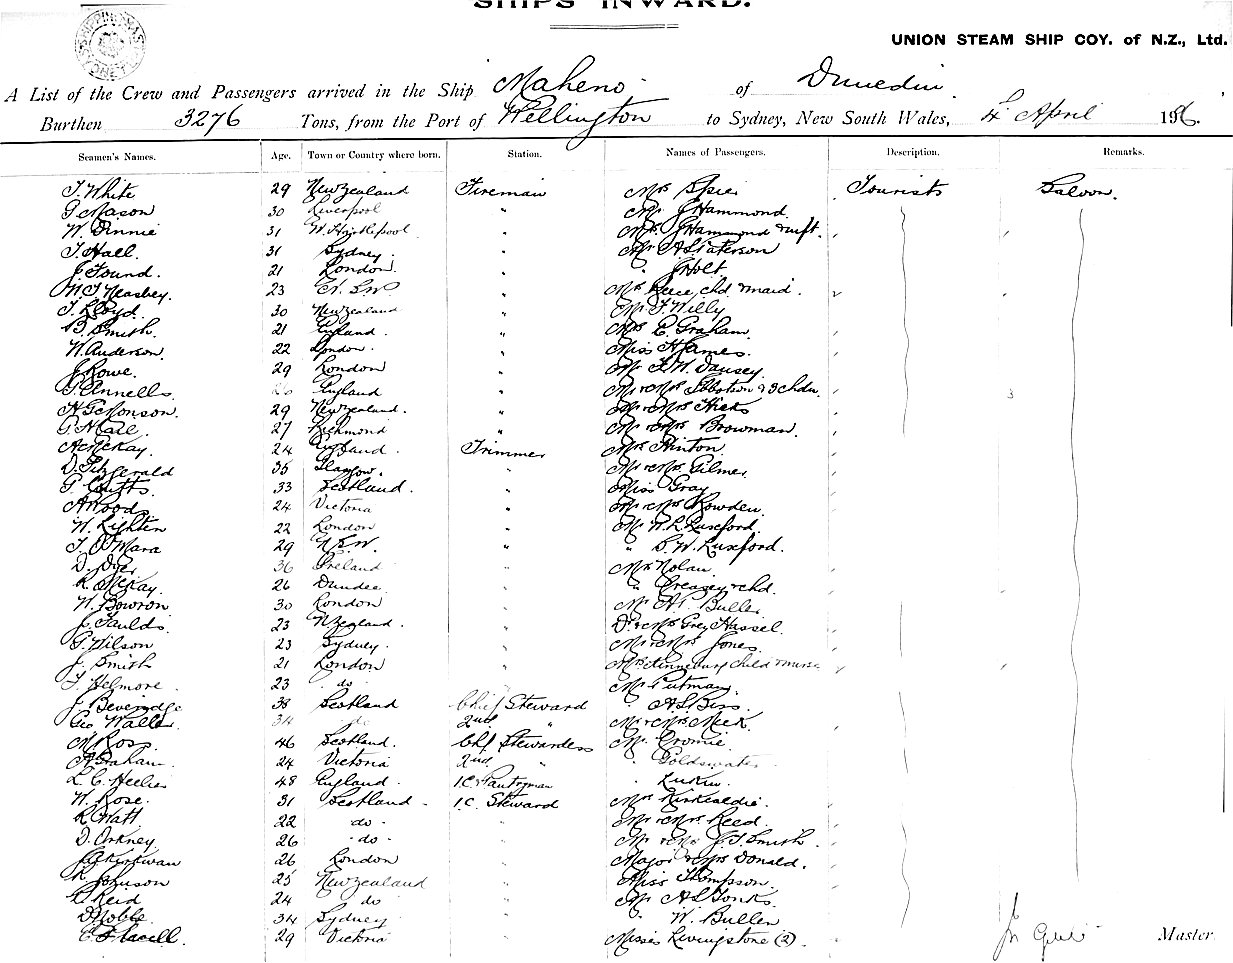 SHIPS INWARD.
UNION STEAM SHIP COY. of N.Z., Ltd.
A List of the Crew and Passengers arrived in the Ship Maheno of Dunedin
Burthen 3276 Tons, from the Port of Wellington to Sydney, New South Wales, 4 April 1906.
Seamen's Names. Age. Town or Country where born. Station. Names of Passengers. Description. Remarks.
T. White 29 New Zealand Fireman Mrs Spier Tourists Saloon.
G. Mason 30 Liverpool " Mr J Hammond.
W. Dinnie 31 W. Hartlepool " Mrs J Hammond & inft.
T. Hall. 31 Sydney. " Mr A S Paterson
J. Found. 21 London. " " J Holt
M J Neasbey. 23 N. S. W " Mrs Reece chd & maid.
T. Lloyd. 30 New Zealand " Mr T. Willy
B. Smith. 21 England. " Mrs C. Graham.
W. Anderson. 22 London. " Miss H James.
J. Rowe. 29 London " Mr F. W. Dausey.
G. Annells. England " Mr & Mrs Ibbotson & 3 chdn 3
H. G. Monson. 29 New Zealand. " Mr & Mrs Hicks
G. Hall. 27 Richmond " Mr & Mrs Browman.
A McKay. 24 England. Trimmer Mrs Hinton
D. Fitzgerald 35 Glasgow. " Mr & Mrs Gilmer
P. Coutts. 33 Scotland. " Miss Gray
A Woods 24 Victoria " Mr & Mrs Rowden.
W. Lighten 22 London " Mr W. R. Luxford.
T. O'Mara 29 N.S.W. " " S. W. Luxford.
D. Dyer 36 Ireland " Mr Nolan
R. McKay. 26 Dundee " " Creagey & chd.
W. Bowron 30 London " Mr A. Buller
J. Faulds. 23 N Zealand. " Dr & Mrs Grey Hassel.
G. Wilson 23 Sydney. " Mr & Mrs Jones.
J. Smith 21 London " Mrs child & nurse
T. Helmore. 23 do " Mr Putman.
J. Beveridge 38 Scotland Chief Steward " A S Biss.
Geo Waller 34 do 2nd " Mr & Mrs Meek.
M Ross 46 Scotland. Chf Stewardess Mr. Cromie.
A Graham 24 Victoria 2nd " " Goldswater
L. C. Heelis 48 England. 1.C. Pantryman " Lukin.
W. Rose. 31 Scotland 1.C. Steward Mrs Kirkcaldie.
R Watt 22 do " Mr & Mrs Reed.
D. Orkney 26 do " Mr & Mrs J. T. Smith.
J A Kirkwan 26 London " Major & Mrs Donald.
R. Johnson 25 New Zealand " Miss Thompson.
C Reid 24 do " Mr A S Tonks.
D Noble. 34 Sydney " " W. Buller
C Flavell. 29 Victoria " Misses Livingstone (2).
Master